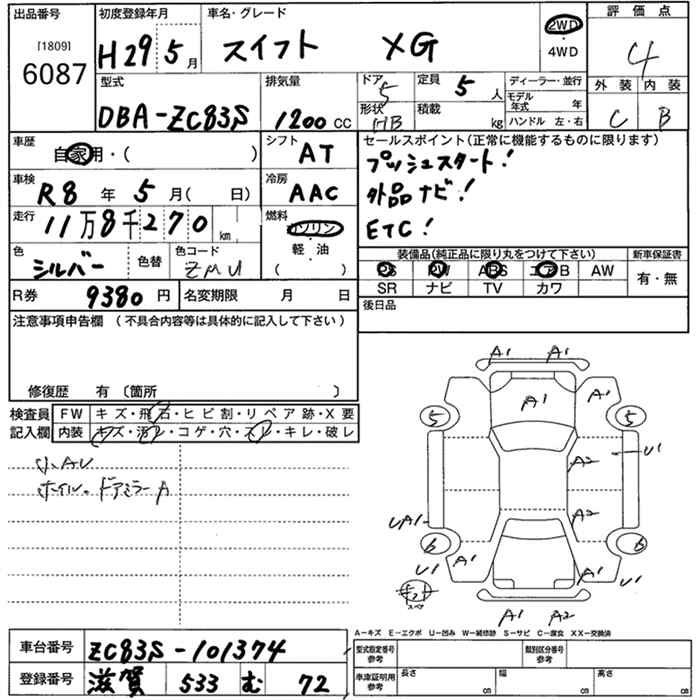 出品番号
[1809]
6087
初度登録年月
H29 5月
車名・グレード
スイフト XG
2WD
・
4WD
評価点
4
外装 内装
C B
型式
DBA-ZC83S
排気量
1200 CC
ドア
5
形状
HB
定員
5 人
積載
kg
ディーラー・並行
モデル年式 年
ハンドル 左・右
車歴
自家用・( )
シフト
AT
車検
R8 年 5 月( 日)
冷房
AAC
走行
11万8千270 km
燃料
ガソリン
・
軽・油
( )
色
シルバー
色替
色コード
ZMU
R券
9380 円
名変期限 月 日
セールスポイント(正常に機能するものに限ります)
プッシュスタート!
外品ナビ!
ETC!
装備品(純正品に限り丸をつけて下さい)
PS PW ABS エアB AW
SR ナビ TV カワ
新車保証書
有・無
後日品
注意事項申告欄 (不具合内容等は具体的に記入して下さい)
修復歴 有 〔箇所 〕
検査員
記入欄
FW キズ・飛石・ヒビ割・リペア跡・X要
内装 キズ・汚レ・コゲ・穴・スレ・キレ・破レ
小AU
ホイル。ドアミラーA
A1 A1
A1 A1
5 5
A2 U1
UA1 A2
6 6
U1 A1 U1
スペア
A1 A2
A−キズ E−エクボ U−凹み W−補修跡 S−サビ C−腐食 XX−交換済
車台番号
ZC83S-101374
登録番号
滋賀 533 む 72
型式指定番号
参考
類別区分番号
参考
車庫証明用
参考
長さ cm
幅 cm
高さ cm